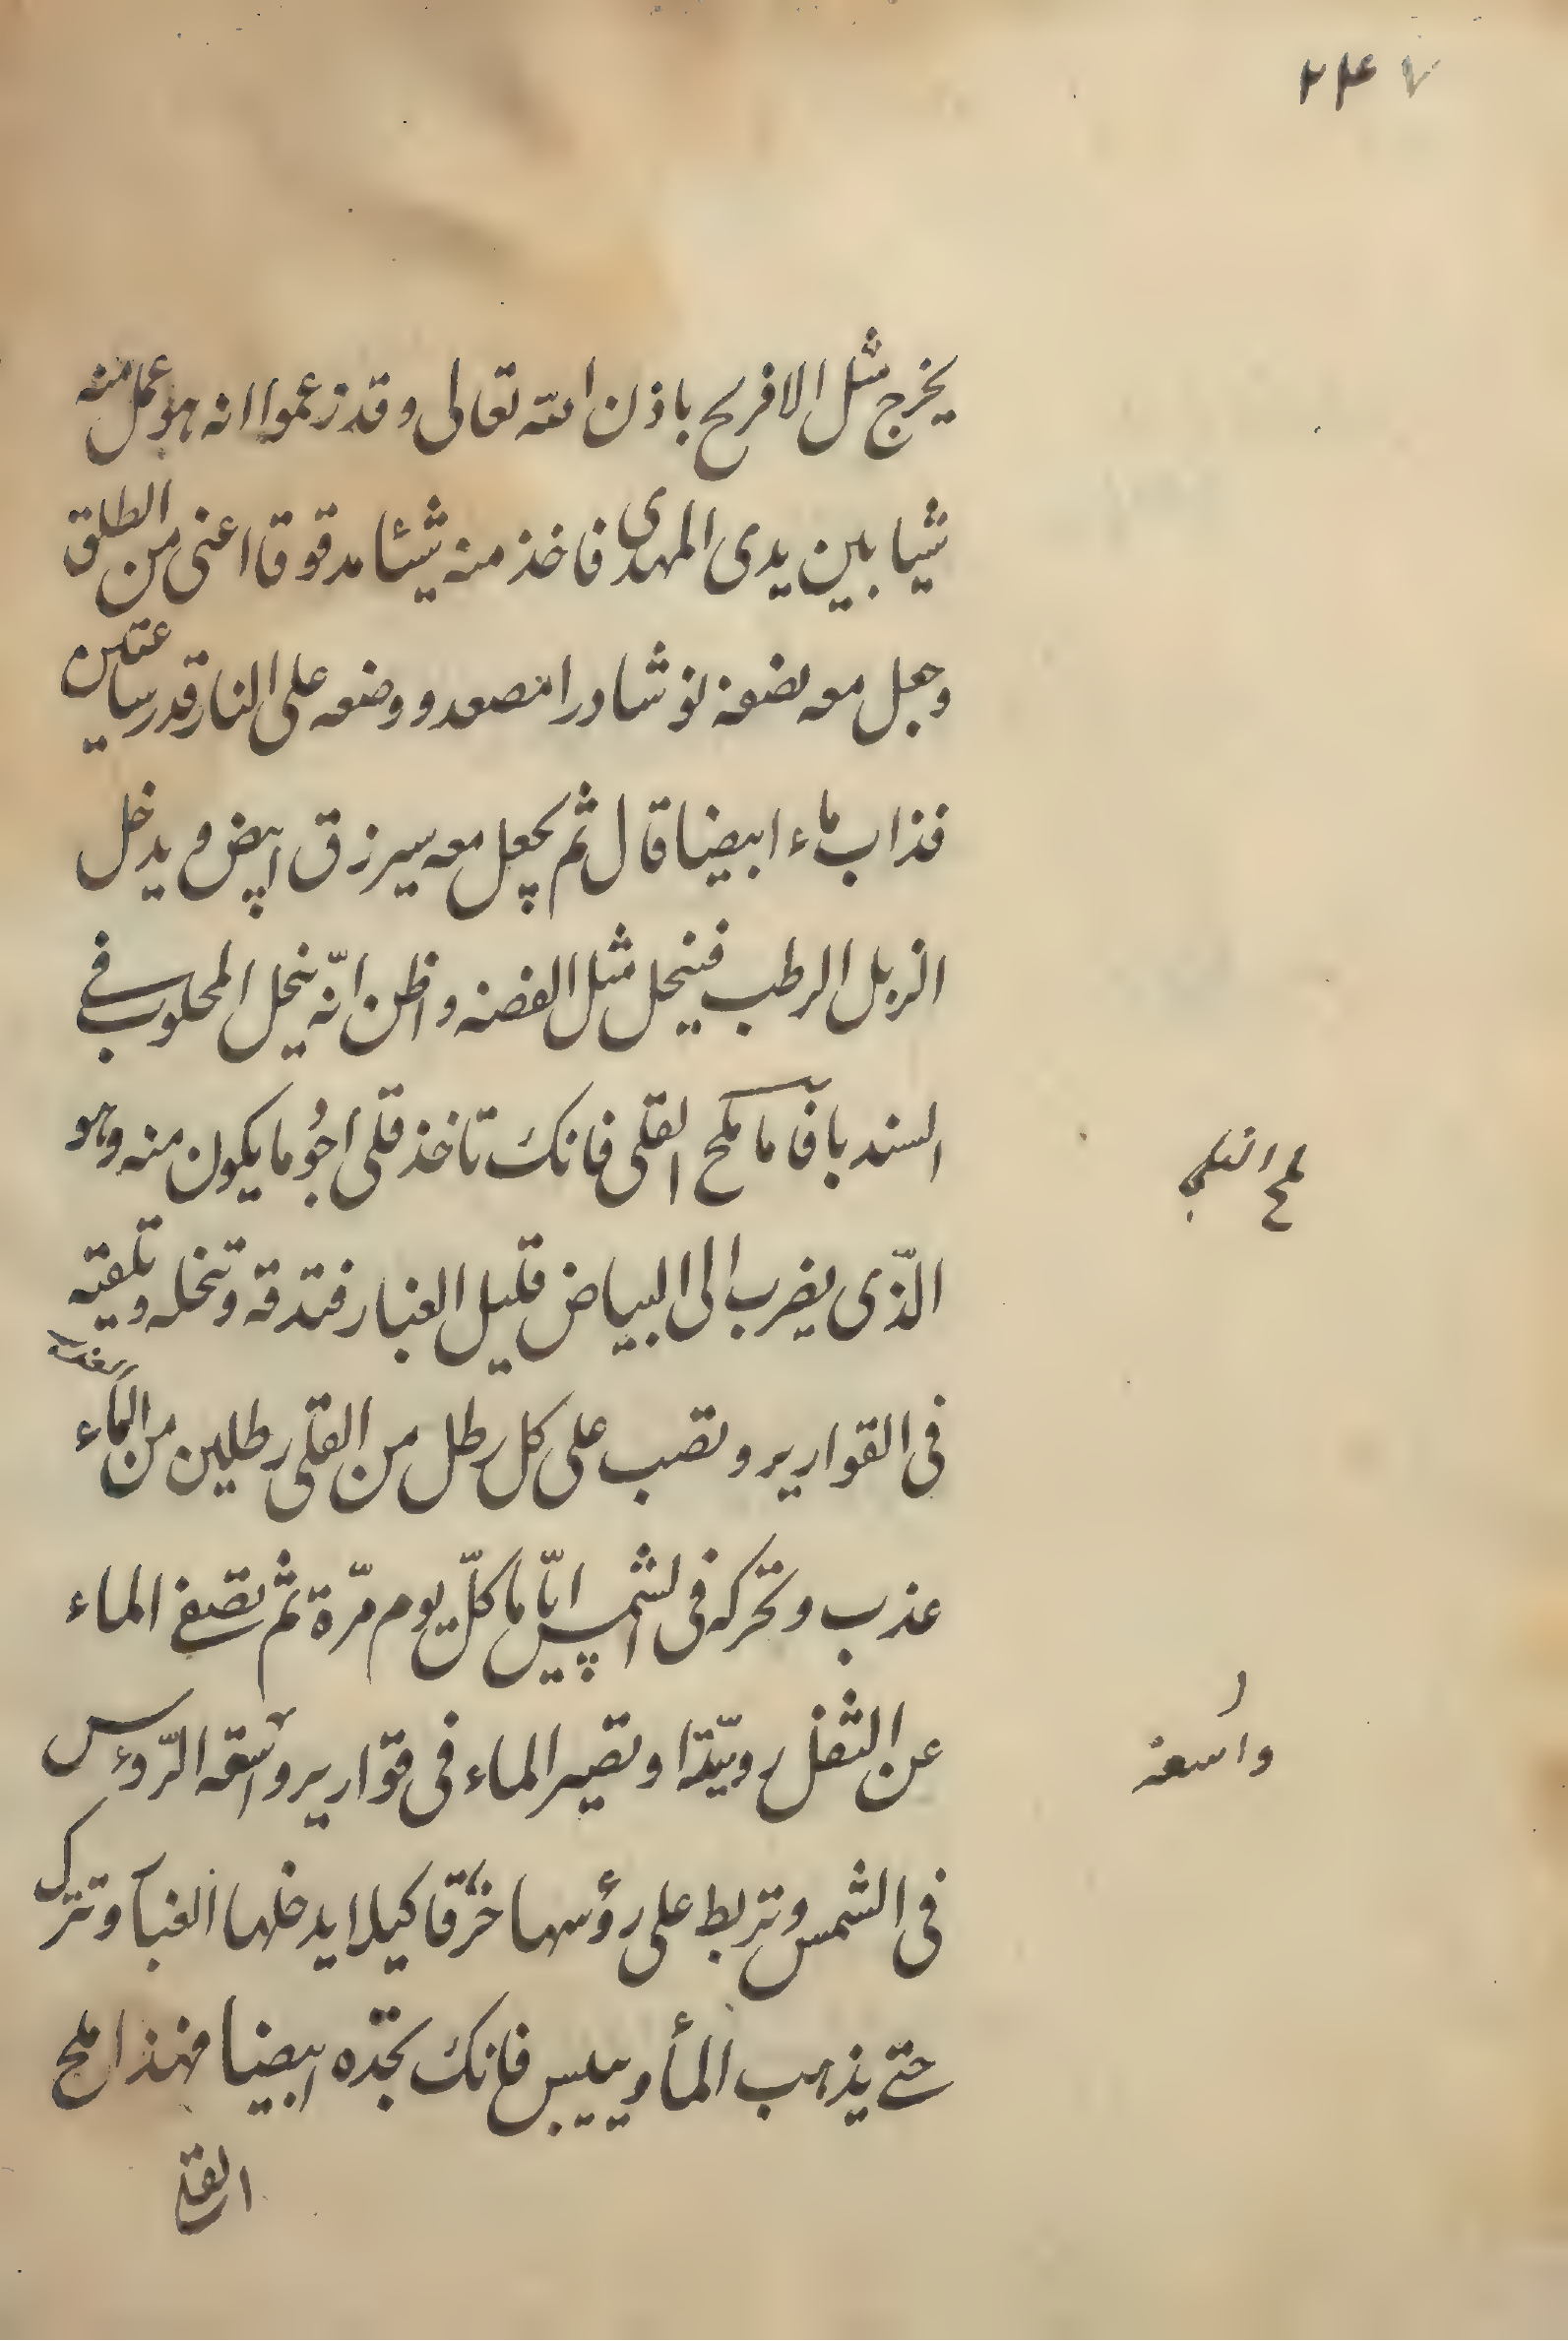 ۲۴۷
يخرج مثل الافرىح باذن الله تعالى وقد زعموا انه هو عمل منه
شيا بين يدى المهدى فاخذ منه شيئا مدقوقا اعنى من الطلق
وجعل معه بضعه نوشادرا مصعدو ووضعه على النار قدر ساعتين
فذاب ماء ابيضا قال ثم يجعل معه سير زق ابيض و يدخل
الزبل الرطب فينحل مثل الفضه واظن انّه ينحل المحلوب فے
السند با فاما ملح القلى فانك تاخذ قلى اجود ما يكون منه وهو
ملح القلى
الّذى يضرب الى البياض قليل الغبار فتدقه وتنخله وتلقيه
فى القوارير وتصب على كل رطل من القلى رطلين من الماء
عذب وتحركه فى الشمس ايّاما كلّ يوم مرّة ثم تصفے الماء
عن الثفل رويّدا وتصير الماء فى قوارير واسعه الرّوءس
واسعه
فى الشمس وتربط على رؤسها خرقا كيلا يدخلها الغبار وتترك
حتے يذهب المأ وييبس فانك تجّده ابيضا فهذا ملح
القلے